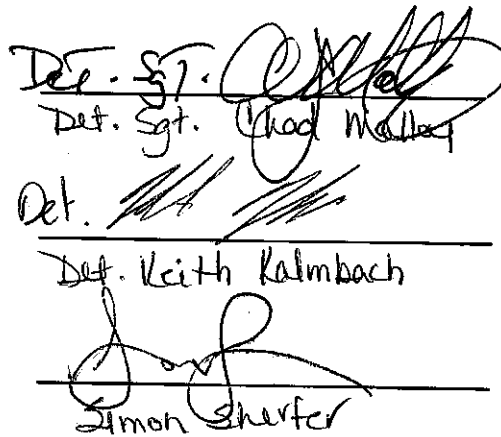 Det. Sgt.
Det. Sgt. Chad Malloy
Det.
Det. Keith Kalmbach
Simon Sherfer